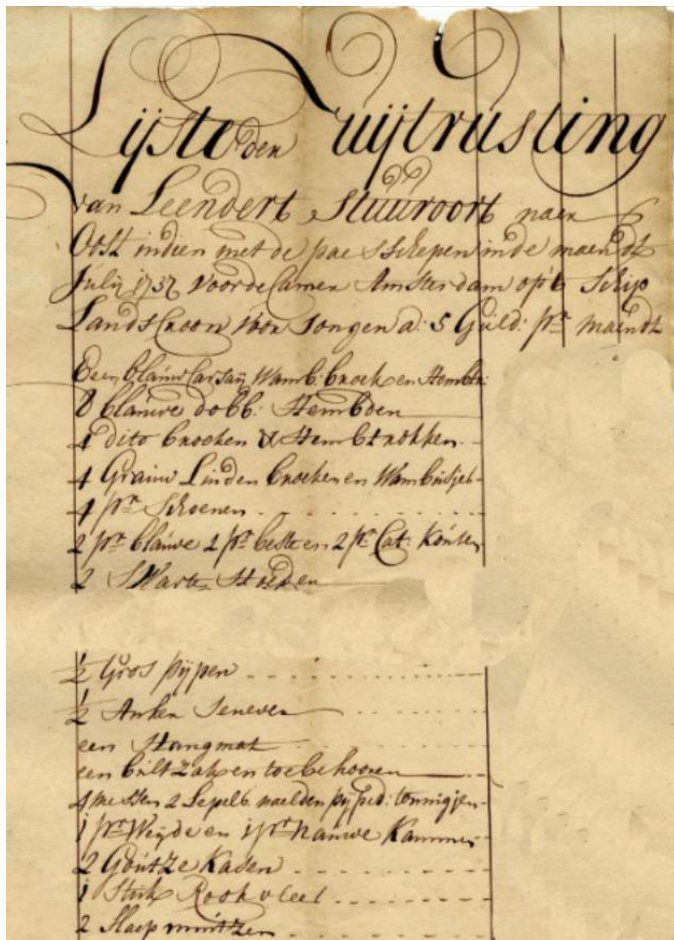 Lijste der uijtrusting
van Leendert Stuuroort naer
Oost indien met de pae schepen inde maendt
Julij 1737 voor de Camer Amsterdam op't Schip
Landscroon voor Jongen a: 5 Guld: pr maendt
Een blauw Carsaij Wamb: broek en Hembtr:
8 blauwe dobb: Hembden
4 dito broeken & Hembtrokken
4 Grauw Linden broeken en Wambuijsjes
4 pr Schoenen
2 pr blauwe 2 pr beste en 2 pr Cat: Kousen
2 Swarte Hoeden
½ Gros pijpen
½ Anker Jenever
een Hangmat
een bultzak en toebehooren
4 messen 2 Lepels naelden pijp
1 pr Weijde en 1 pr nauwe Kammen
2 Goutze Kasen
1 Stuk Rookvlees
2 Slaepmutzen